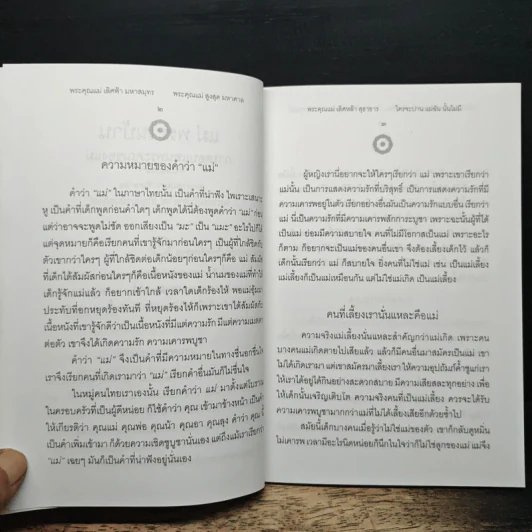 พระคุณแม่ เลิศฟ้า มหาสมุทร พระคุณแม่ สูงสุด มหาศาล
๒
ความหมายของคำว่า "แม่"
คำว่า "แม่" ในภาษาไทยนั้น เป็นคำที่น่าฟัง ไพเราะเสนาะ
หู เป็นคำที่เด็กพูดก่อนคำใดๆ เด็กพูดได้นี่ต้องพูดคำว่า "แม่" ก่อน
แต่ว่าอาจจะพูดไม่ชัด ออกเสียงเป็น "มะ" เป็น "แมะ" อะไรไปก็ได้
แต่จุดหมายก็คือเรียกคนที่เขารู้จักมาก่อนใครๆ เป็นผู้ที่ใกล้ชิดกับ
ตัวเขากว่าใครๆ ผู้ที่ใกล้ชิดต่อเด็กน้อยๆก่อนใครๆก็คือ แม่ สัมผัส
ที่เด็กได้สัมผัสก่อนใครๆก็คือเนื้อหนังของแม่ น้ำนมของแม่ที่ทำให้
เด็กรู้จักแม่แล้ว ก็อยากเข้าใกล้ เวลาใดเด็กร้องไห้ พอแม่อุ้มมา
ประทับที่อกหยุดร้องทันที ที่หยุดร้องไห้ก็เพราะเขาได้สัมผัสกับ
เนื้อหนังที่เขารู้จักดีว่าเป็นเนื้อหนังที่มีแต่ความรัก มีแต่ความเมตตา
ต่อตัว เขาจึงได้เกิดความรัก ความเคารพบูชา
คำว่า "แม่" จึงเป็นคำที่มีความหมายในทางชื่นอกชื่นใจ
เราจึงเรียกคนที่เกิดเรามาว่า "แม่" เรียกคำอื่นมันก็ไม่ชื่นใจ
ในหมู่คนไทยเราเองนั้น เรียกคำว่า แม่ มาตั้งแต่โบราณ
ในครอบครัวที่เป็นผู้ดีหน่อย ก็ใช้คำว่า คุณ เข้ามาข้างหน้า เป็นคำ
ให้เกียรติว่า คุณแม่ คุณพ่อ คุณน้า คุณอา คุณลุง คำว่า คุณ
เป็นคำเพิ่มเข้ามา ก็ด้วยความเชิดชูบูชานั่นเอง แต่ถึงแม้เราเรียกว่า
"แม่" เฉยๆ มันก็เป็นคำที่น่าฟังอยู่นั่นเอง
พระคุณแม่ เลิศหล้า สุธาธาร ใครจะปาน แม่ฉัน นั้นไม่มี
ผู้หญิงเรานี่อยากจะให้ใครๆเรียกว่า แม่ เพราะเขาเรียกว่า
แม่นั้น เป็นการแสดงความรักที่บริสุทธิ์ เป็นการแสดงความรักที่มี
ความเคารพอยู่ในตัว เรียกอย่างอื่นมันเป็นความรักแบบอื่น เรียกว่า
แม่ นี่เป็นความรักที่มีความเคารพสักการะบูชา เพราะฉะนั้นผู้ที่ได้
เป็นแม่ ย่อมมีความสบายใจ คนที่ไม่มีโอกาสเป็นแม่ เพราะอะไร
ก็ตาม ก็อยากจะเป็นแม่ของคนอื่นเขา จึงต้องเลี้ยงเด็กไว้ แล้วก็
เด็กนั้นเรียกว่า แม่ ก็สบายใจ ยิ่งคนที่ไม่ใช่แม่ เช่น เป็นแม่เลี้ยง
แม่เลี้ยงก็เป็นแม่เหมือนกัน แต่ไม่ใช่แม่เกิด เป็นแม่เลี้ยง
คนที่เลี้ยงเรานั่นแหละคือแม่
ความจริงแม่เลี้ยงนั่นแหละสำคัญกว่าแม่เกิด เพราะคน
บางคนแม่เกิดตายไปเสียแล้ว แล้วก็มีคนอื่นมาสมัครเป็นแม่ เขา
ไม่ได้เกิดเรามา แต่เขาสมัครมาเลี้ยงเรา ให้ความอุปถัมภ์ค้ำชูแก่เรา
ให้เราได้อยู่ได้กินอย่างสะดวกสบาย มีความเสียสละทุกอย่าง เพื่อ
ให้เด็กนั้นเจริญเติบโต ความจริงคนที่เป็นแม่เลี้ยง ควรจะได้รับ
ความเคารพบูชามากกว่าแม่ที่ไม่ได้เลี้ยงเสียอีกด้วยซ้ำไป
สมัยนี้เด็กบางคนเมื่อรู้ว่าไม่ใช่แม่ของตัว เขาก็กลับดูหมิ่น
ไม่เคารพ เวลามีอะไรนิดหน่อยก็นึกในใจว่าก็ไม่ใช่ลูกของแม่ แม่จึง